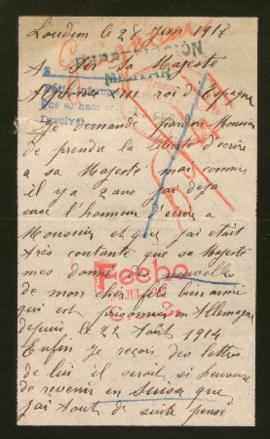 Loudun le 28 Juin 1917
A Sir Sa Majesté
Alphonse XIII roi d'Espagne
Je demande pardon Monsieur
de prendre la liberté d'écrire
a sa Majesté mai comme
il y a 2 ans j'ai deja
eue l'honneur d'ecrire a
Monsieur et que j'ai était
très contante que sa Majesté
mes donne des nouvelles
de mon cher fils bien aimé
qui est prisonnier en Allemagne
depuis le 22 Août 1914
Enfin Je reçois des lettres
de lui il serait si heureux
de revenir en Suisse que
j'ai tout de suite pensé
MILITAR
que se hace
Fecho
JUL